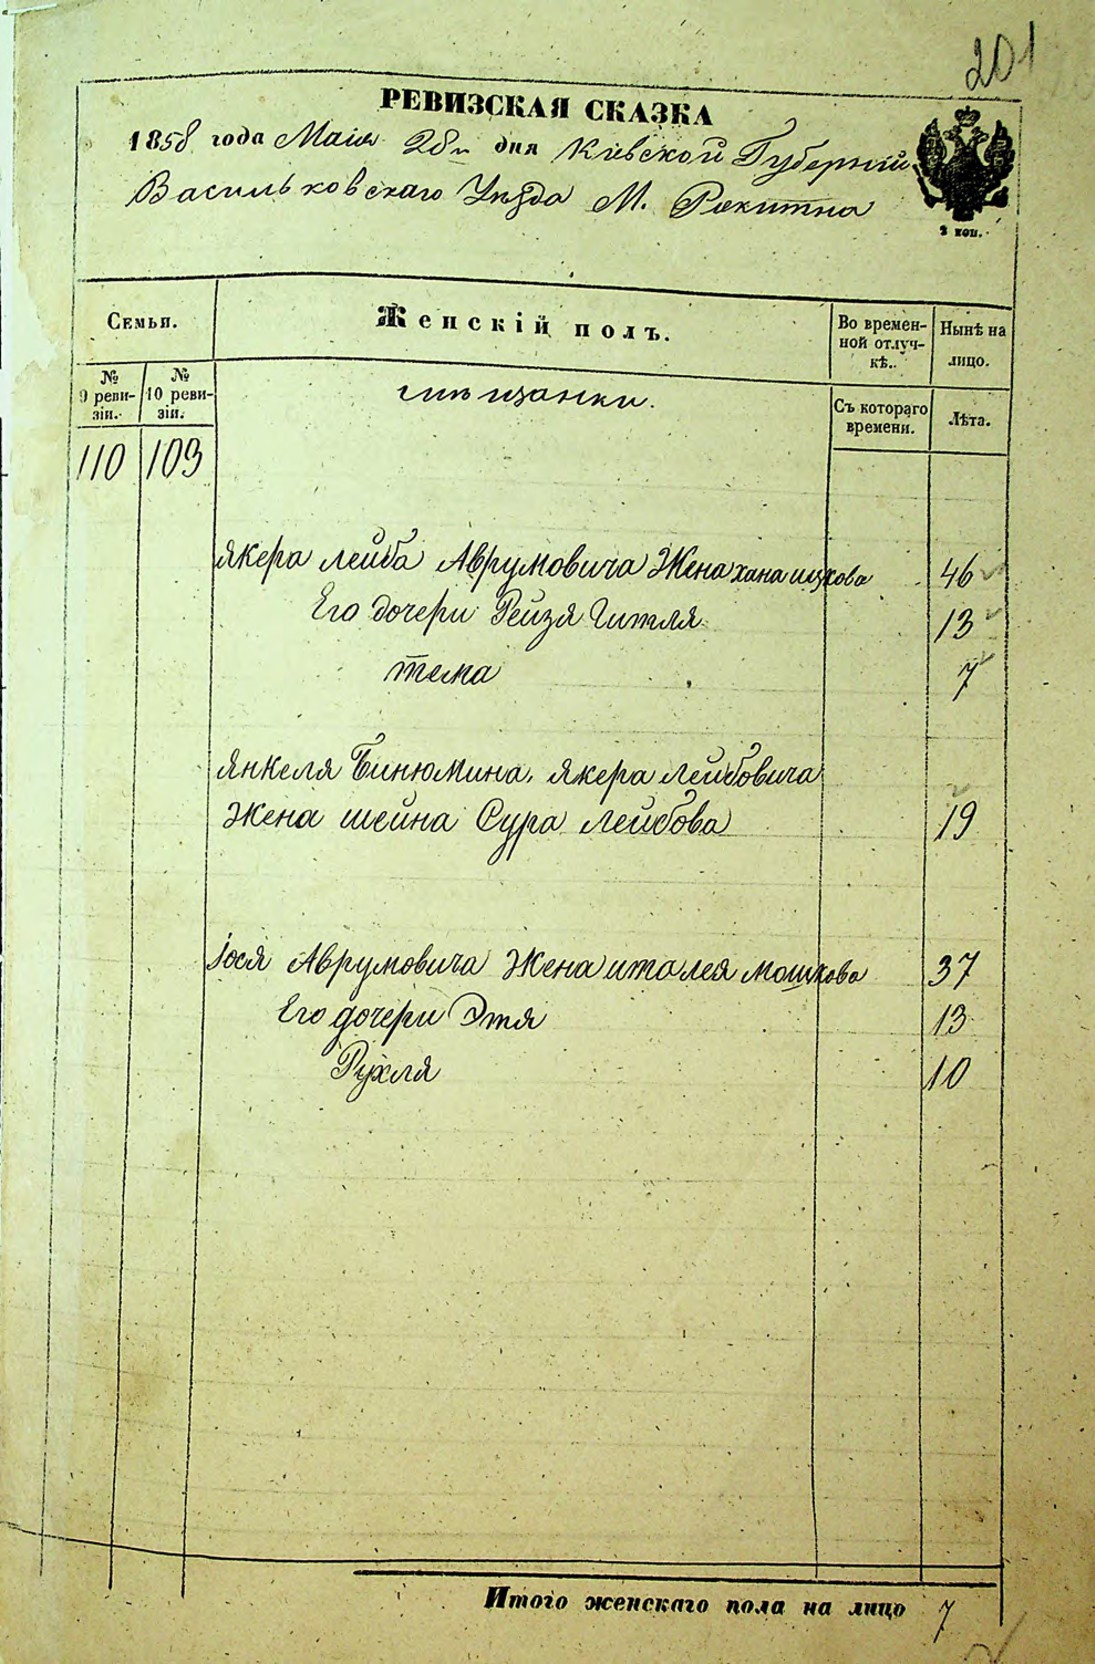 201
РЕВИЗСКАЯ СКАЗКА
1858 года Маія 28го дня Кіевской Губерніи
Васильковскаго Уѣзда М. Рокитна
2 коп.
Семьи.
Женскій полъ.
Во времен-
ной отлуч-
кѣ.
Нынѣ на
лицо.
№
9 реви-
зіи.
№
10 реви-
зіи.
мѣщанки.
Съ котораго
времени.
Лѣта.
110 103
Якера Лейба Аврумовича Жена хана ицкова 46
Его дочери Рейзя Гитля 13
тема 7
Янкеля Бинюмина, Якера Лейбовича
Жена шейна Сура Лейбова 19
Іося Аврумовича Жена италея мошкова 37
Его дочери Этя 13
Рухля 10
Итого женскаго пола на лицо 7